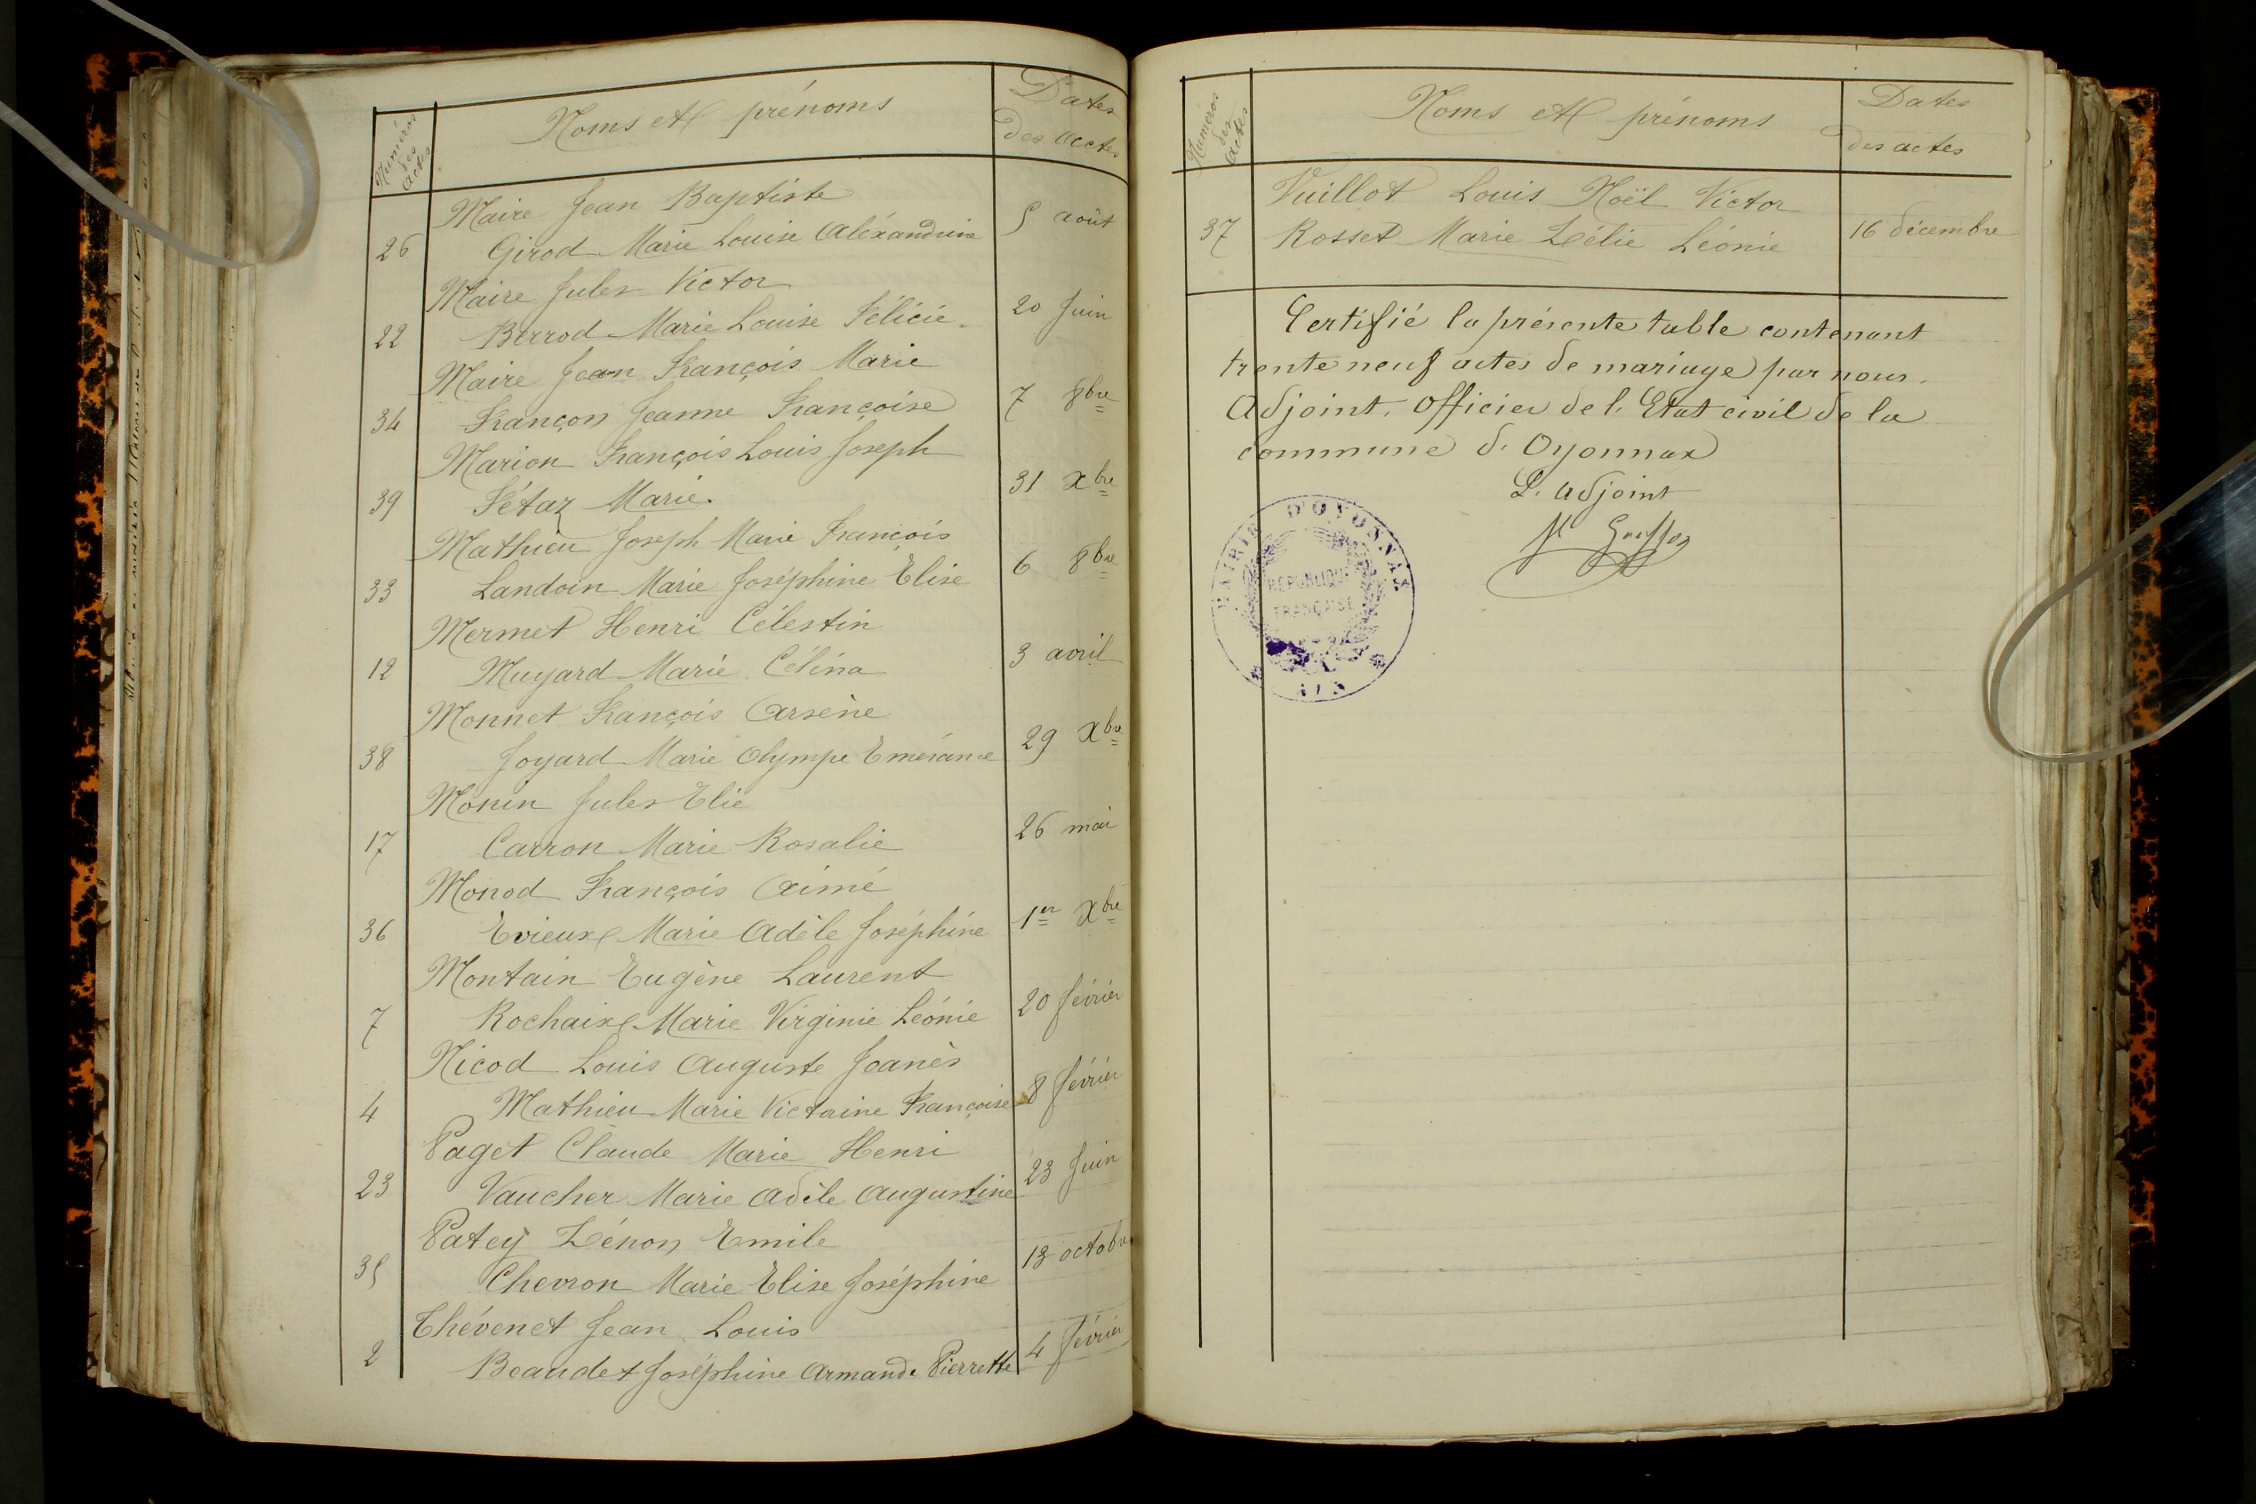 Numéros des actes
Noms et prénoms
Dates des actes
Maire Jean Baptiste
26 Girod Marie Louise Aléxandrine 5 août
Maire Jules Victor
22 Berrod Marie Louise Félicie. 20 Juin
Maire Jean François Marie
34 Françon Jeanne Françoise 7 8bre
Marion François Louis Joseph
39 Fétaz Marie. 31 Xbre
Mathieu Joseph Marie François
33 Landoin Marie Joséphine Elise 6 8bre
Mermet Henri Célestin
12 Muyard Marie Célina 3 avril
Monnet François Arsène
38 Joyard Marie Olympe Emérance 29 Xbre
Monin Jules Elie
17 Carron Marie Rosalie 26 mai
Monod François Aimé
36 Evieux Marie Adèle Joséphine 1er Xbre
Montain Eugène Laurent
7 Rochaix Marie Virginie Léonie 20 février
Nicod Louis Auguste Joanès
4 Mathieu Marie Victoine Françoise 8 février
Paget Claude Marie Henri
23 Vaucher Marie Adèle Augustine 23 Juin
Patey Zénon Emile
35 Chevron Marie Elise Joséphine 13 octobre
Thévenet Jean Louis
2 Beaudet Joséphine Armande Pierrette 4 février
Numéros des actes
Noms et prénoms
Dates des actes
Vuillot Louis Noël Victor
37 Rosset Marie Zélie Léonie 16 décembre
Certifié la présente table contenant
trente neuf actes de mariage par nous.
Adjoint, Officier de l'Etat civil de la
commune d'Oyonnax
L'adjoint
MAIRIE D'OYONNAX
RÉPUBLIQUE
FRANÇAISE
AIN